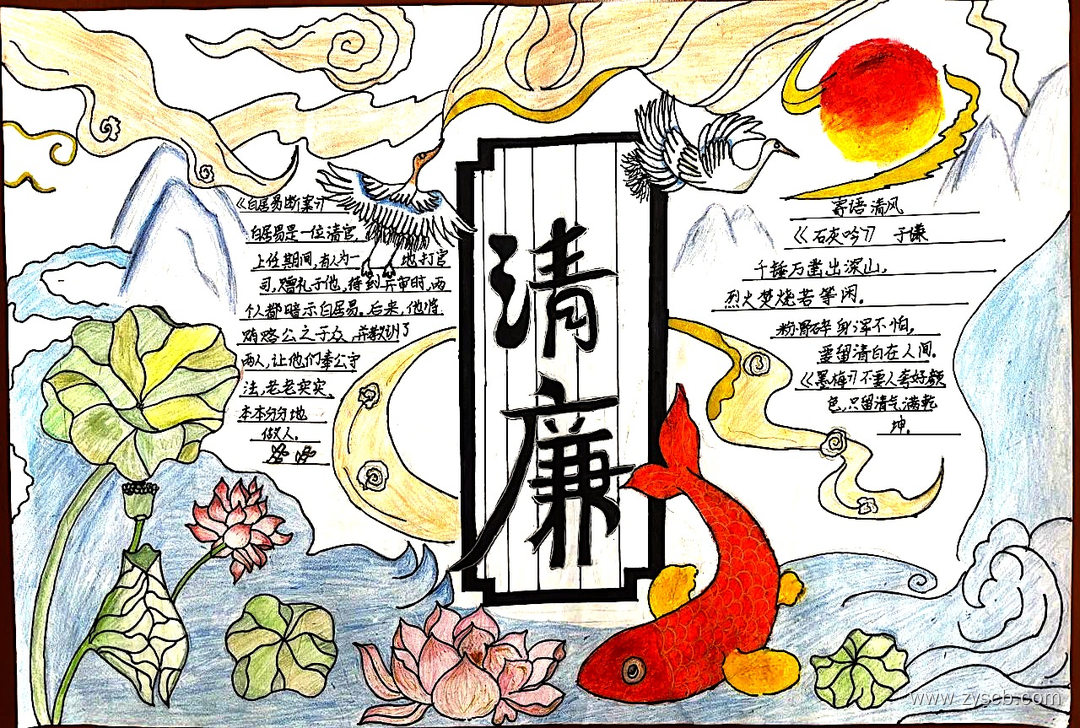 清廉
《白居易断案》
白居易是一位清官,
上任期间,有人为一 地打官
司,赠礼于他,待到开审时,两
个人都暗示白居易。后来,他将
贿赂公之于众,并教训了
两人,让他们奉公守
法,老老实实、
本本分分地
做人。
寄语清风
《石灰吟》 于谦
千锤万凿出深山,
烈火焚烧若等闲。
粉骨碎身浑不怕,
要留清白在人间。
《墨梅》不要人夸好颜
色,只留清气满乾
坤。
www.zyseb.com